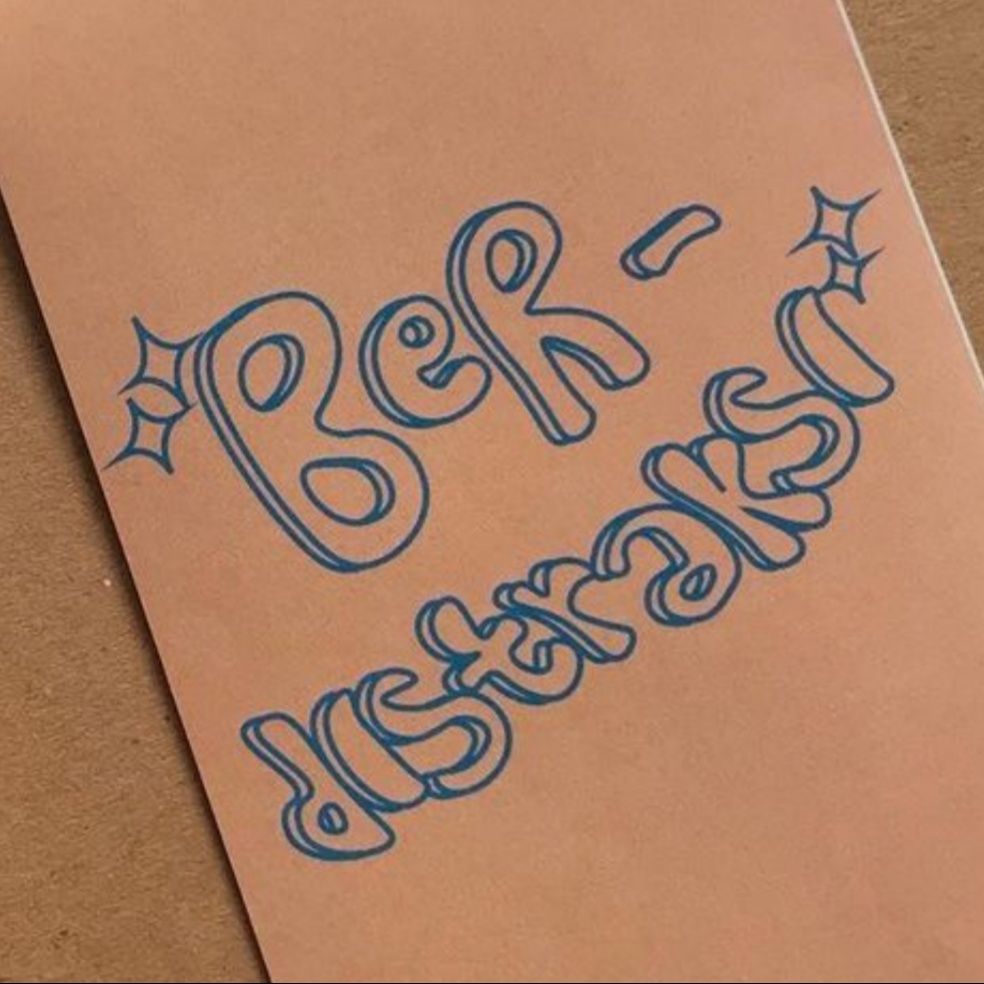 Ber-
distraksi